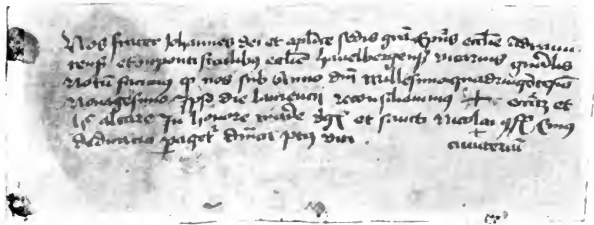 Nos frater Johannes dei et aplice sedis gra Epus ecclie
rens et in pontificalibus ecclie havelbergens vicarius gnalis
Notum facimus q nos sub Anno dni Millesimoquadringetesimo
Nonagesimo Ipso die laurencii reconsiliavimus et
altare In honore marie et sancti Nicolai Cuius
dedicatio paget dnica
cimiteriu